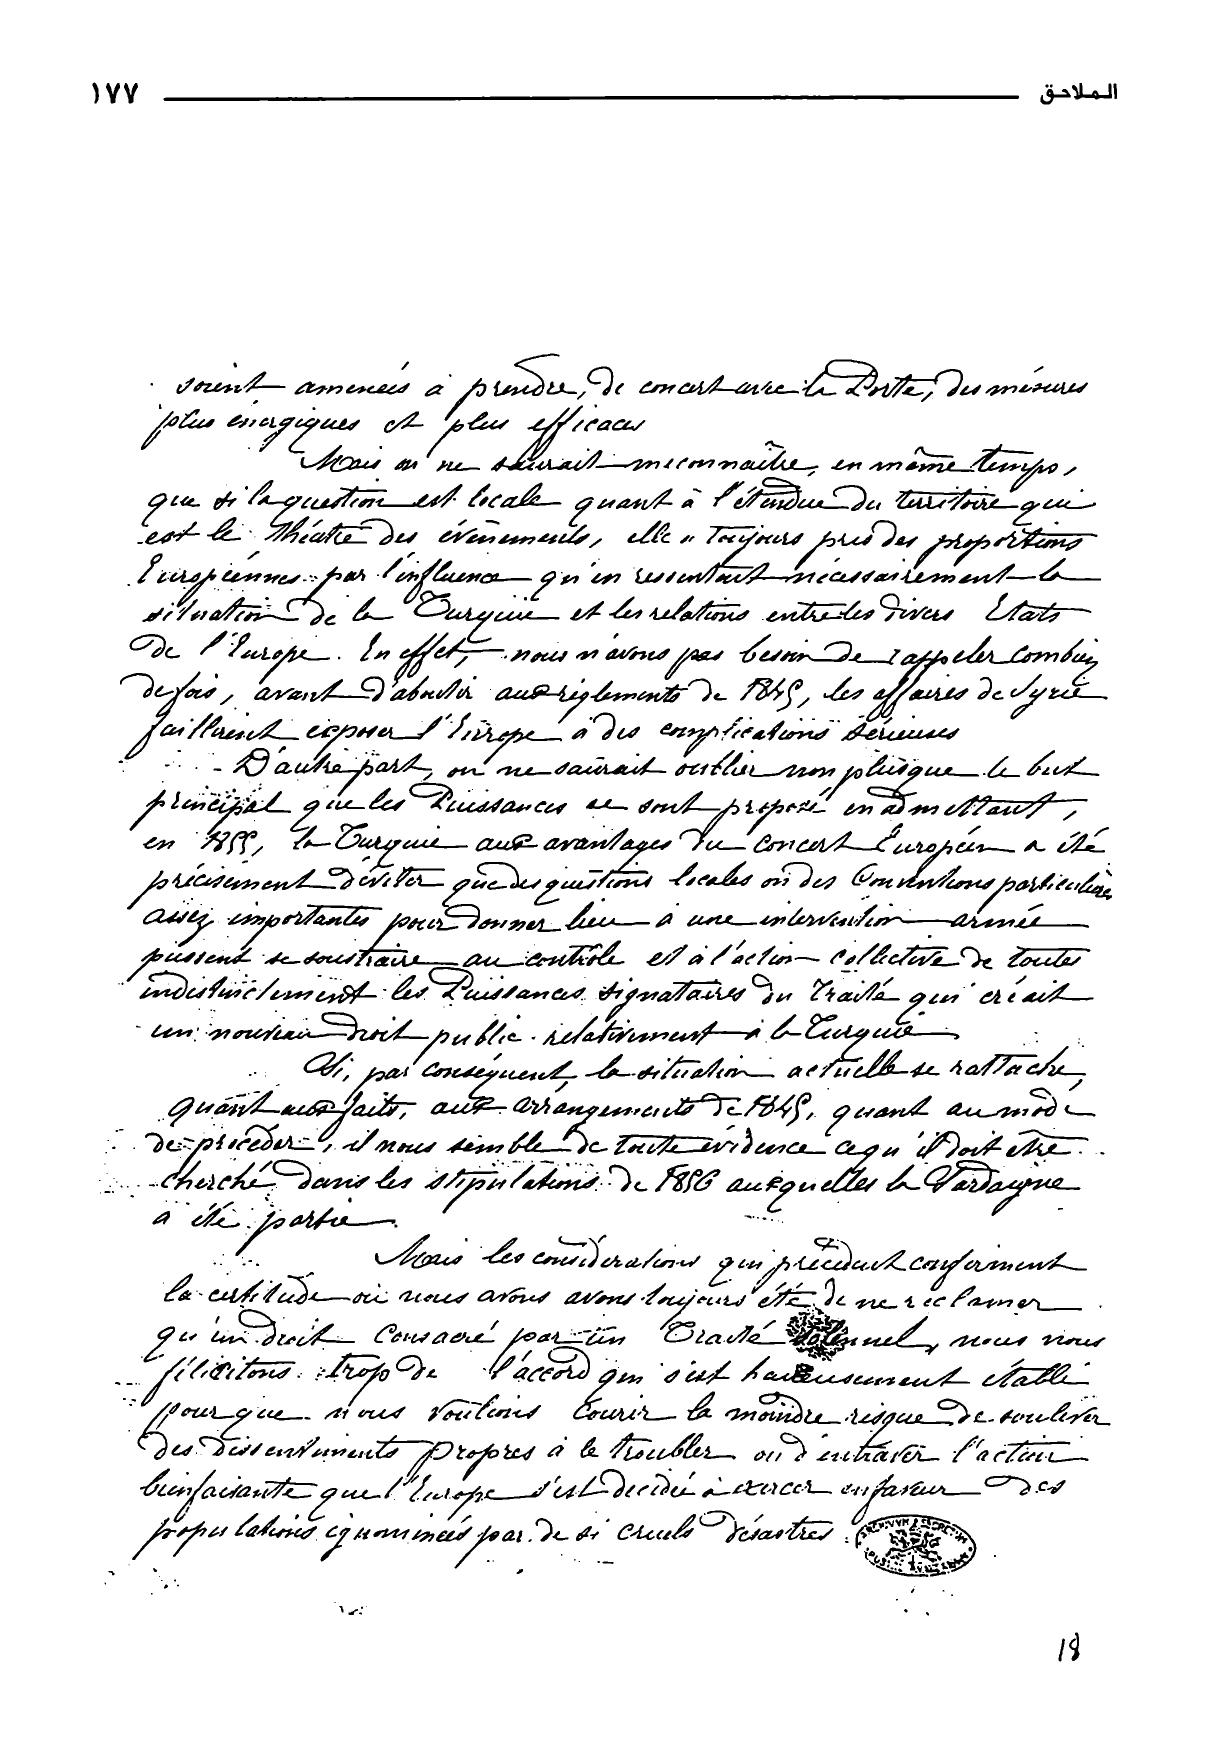 الملاحق ١٧٧
soient amenées à prendre, de concert avec la Porte, des mésures
plus énergiques et plus efficaces
Mais on ne saurait méconnaître, en même temps,
que si la question est locale quant à l'étendue du territoire qui
est le théatre des événements, elle a toujours pris des proportions
Européennes par l'influence qu'en ressentait nécessairement la
situation de la Turquie et les relations entre les divers Etats
de l'Europe. En effet, nous n'avons pas besoin de rappeler combien
de fois, avant d'aboutir aux réglements de 1845, les affaires de Syrie
faillirent exposer l'Europe à des complications sérieuses
D'autre part, on ne saurait oublier non plus que le but
principal que les Puissances se sont proposé en admettant,
en 1855, la Turquie aux avantages du Concert Européen a été
précisément d'éviter que des questions locales ou des Conventions particulières
assez importantes pour donner lieu à une intervention armée
pussent se soustraire au contrôle et à l'action collective de toutes
indistinctement les Puissances signataires du Traité qui créait
un nouveau droit public relativement à la Turquie
Si, par conséquent, la situation actuelle se rattache,
quant aux faits, aux arrangements de 1845, quant au mode
de procéder, il nous semble de toute évidence ce qu'il doit etre
cherché dans les stipulations de 1856 auxquelles la Sardaigne
a été partie.
Mais les considérations qui précédent confirment
la certitude où nous avons avons toujours été de ne réclamer
qu'un droit consacré par un Traité solennel, nous nous
félicitons trop de l'accord qui s'est heureusement établi
pour que nous voulions courir le moindre risque de soulever
des dissentiments propres à le troubler ou d'entraver l'action
bienfaisante que l'Europe s'est decidée à exercer en faveur des
populations par de si cruels désastres.
18